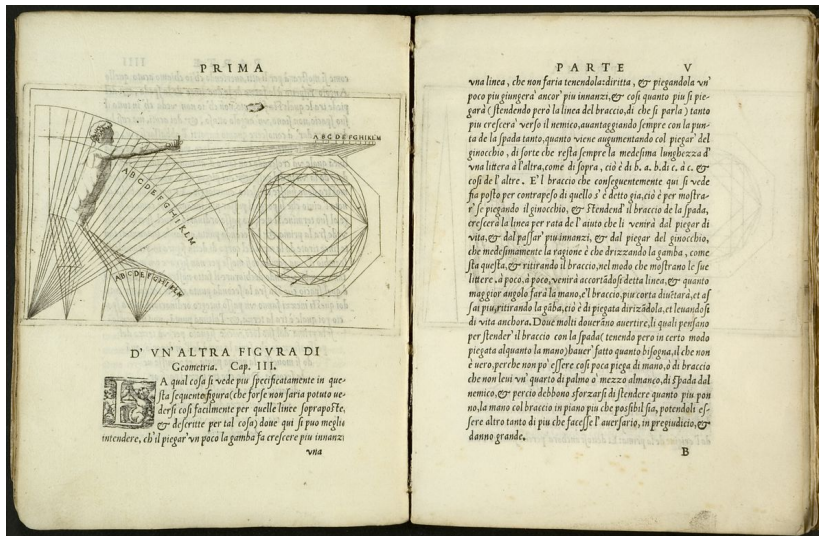 PRIMA
A B C D E F G H I K L M
A B C D E F G H I K L M
A B C D E F G H I K L M
D' VN'ALTRA FIGVRA DI
Geometria. Cap. III.
LA qual cosa si vede piu specificatamente in que-
sta sequente figura (che forse non saria potuto ue-
dersi cosi facilmente per quelle linee sopraposte,
& descritte per tal cosa) doue qui si puo meglio
intendere, ch'il piegar' vn poco la gamba fa crescere piu innanzi
vna
PARTE V
vna linea, che non faria tenendola: diritta, & piegandola vn'
poco piu giungerà ancor' piu innanzi, & cosi quanto piu si pie-
garà (stendendo però la linea del braccio, di che si parla) tanto
piu crescerà verso il nemico, auantaggiando sempre con la pun-
ta de la spada tanto, quanto viene augumentando col piegar' del
ginocchio, di sorte che resta sempre la medesima lunghezza d'
vna littera à l'altra, come di sopra, ciò è di b. a. b. di c. à c. &
cosi de l'altre. E'l braccio che conseguentemente qui si vede
sia posto per contrapeso di quello s'è detto gia, ciò è per mostra-
r' se piegando il ginocchio, & stendend' il braccio de la spada,
crescerà la linea per rata de l'aiuto che li venirà dal piegar di
vita, & dal passar' piu innanzi, & dal piegar del ginocchio,
che medesimamente la ragione è che drizzando la gamba, come
sta questa, & ritirando il braccio, nel modo che mostrano le sue
littere, à poco, à poco, venirà accortādosi detta linea, & quanto
maggior angolo farà la mano, e'l braccio, piu corta diuētarà, et as
sai piu, ritirando la gāba, ciò è di piegata dirizādola, et leuandosi
di vita anchora. Doue molti doueràno auertire, li quali pensano
per stender' il braccio con la spada (tenendo pero in certo modo
piegata alquanto la mano) hauer' fatto quanto bisogna, il che non
è uero, perche non po' essere cosi poca piega di mano, ò di braccio
che non leui vn' quarto di palmo ò mezzo almanco, di spada dal
nemico, & perciò debbono sforzarsi di stendere quanto piu pon
no, la mano col braccio in piano piu che possibil sia, potendoli es-
sere altro tanto di piu che facesse l'auersario, in pregiudicio, &
danno grande.
B